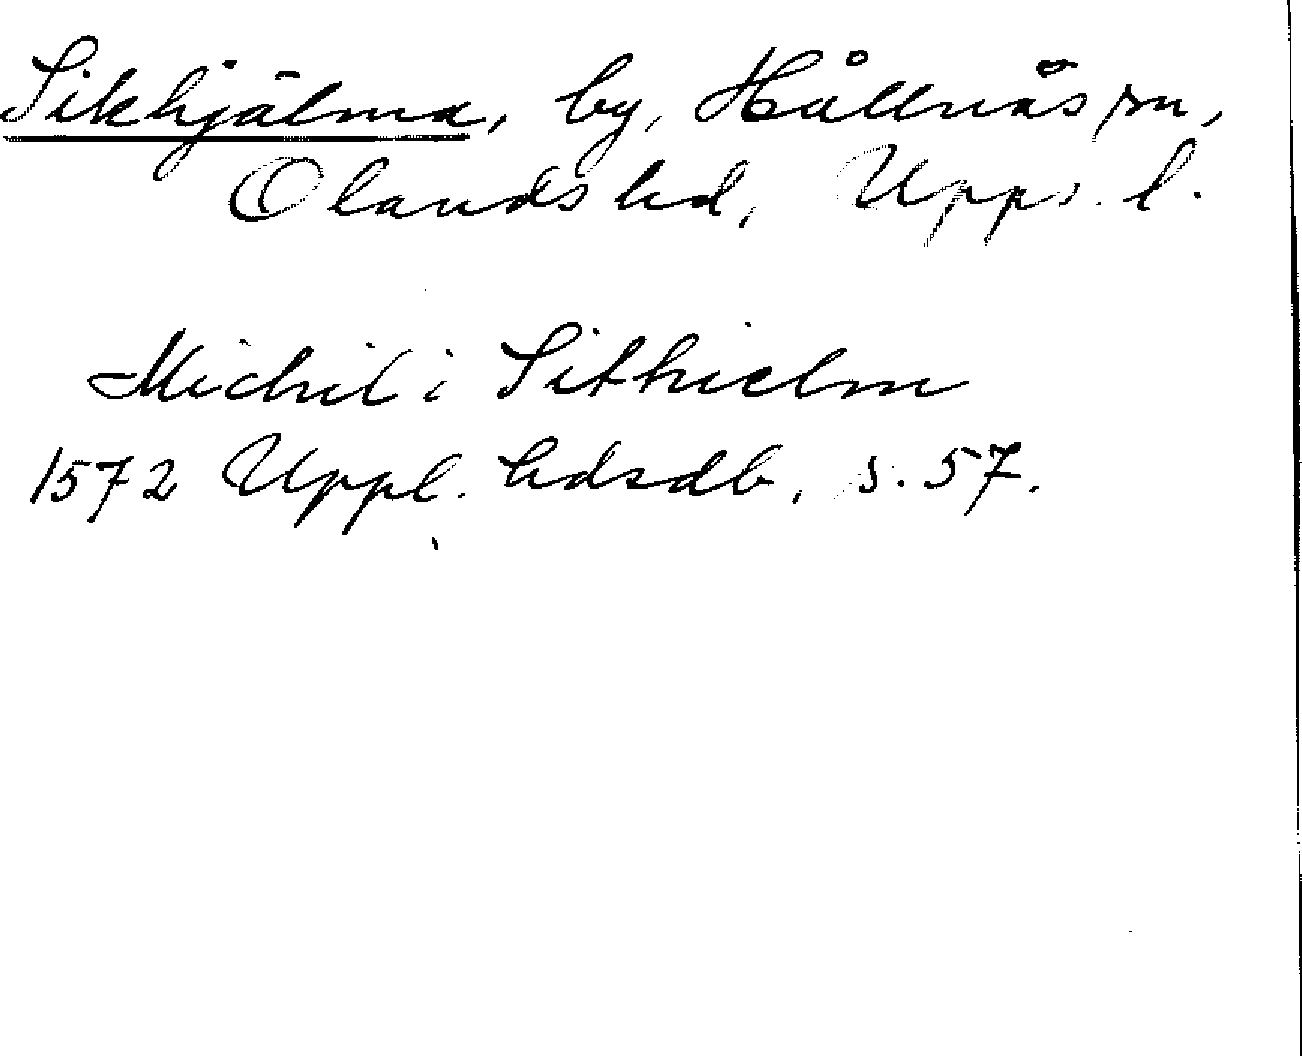 Sikhjälma, by, Hållnäs sn,
Olands hd, Upps. l.
Michil i Sikhielm
1572 Uppl. hdsdb, s. 57.